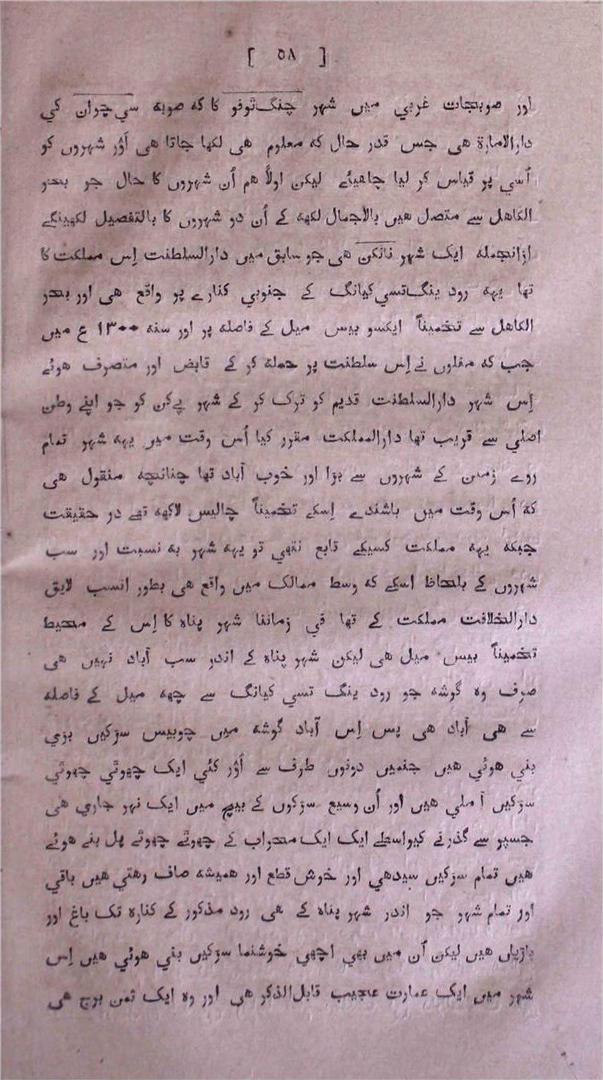 [ ٥٨ ]
اور صوبجات غربي میں شهر چنگ‌توفو کا که صوبه سي‌چوان کي
دارالامارة هی جس قدر حال که معلوم هی لکها جاتا هی اَوْر شهروں کو
اُسي پر قیاس کر لیا چاهیئے لیکن اولاً هم اُن شهروں کا حال جو بحر
الکاهل سے متصل هیں بالاجمال لکهه کے اُن دو شهروں کا بالتفصیل لکهینگے
ازانجمله ایک شهر نانکن هی جو سابق میں دارالسلطنت اِس مملکت کا
تها یهه رود ینگ‌تسي‌کیانگ کے جنوبي کنارے پر واقع هی اور بحر
الکاهل سے تخمیناً ایکسو بیس میل کے فاصله پر اور سنه ١٣٠٠ ع میں
جب که مغلوں نے اِس سلطنت پر حمله کر کے قابض اور متصرف هوئے
اِس شهر دارالسلطنت قدیم کو ترک کر کے شهر پےکن کو جو اپنے وطن
اصلي سے قریب تها دارالمملکت مقرر کیا اُس وقت میں یهه شهر تمام
روے زمین کے شهروں سے بڑا اور خوب آباد تها چنانچه منقول هی
که اُس وقت میں باشندے اِسکے تخمیناً چالیس لاکهه تهے در حقیقت
جبکه یهه مملکت کسیکے تابع نتهي تو یهه شهر به نسبت اور سب
شهروں کے بلحاظ اسکے که وسط ممالک میں واقع هی بطور انسب لایق
دارالخلافت مملکت کے تها في زماننا شهر پناه کا اِس کے محیط
تخمیناً بیس میل هی لیکن شهر پناه کے اندر سب آباد نهیں هی
صرف وه گوشه جو رود ینگ تسي کیانگ سے چهه میل کے فاصله
سے هی آباد هی پس اِس آباد گوشه میں چوبیس سڑکیں بڑي
بني هوئي هیں جنمیں دونوں طرف سے اَوْر کئي ایک چهوٹي چهوٹي
سڑکیں آ ملي هیں اور اُن وسیع سڑکوں کے بیچ میں ایک نهر جاري هی
جسپر سے گذرنے کیواسطے ایک ایک محراب کے چهوٹے چهوٹے پل بنے هوئے
هیں تمام سڑکیں سیدهي اور خوش قطع اور همیشه صاف رهتي هیں باقي
اور تمام شهر جو اندر شهر پناه کے هی رود مذکور کے کناره تک باغ اور
باڑیاں هیں لیکن اُن میں بهي اچهي خوشنما سڑکیں بني هوئي هیں اِس
شهر میں ایک عمارت عجیب قابل‌الذکر هی اور وه ایک ثمن برج هی